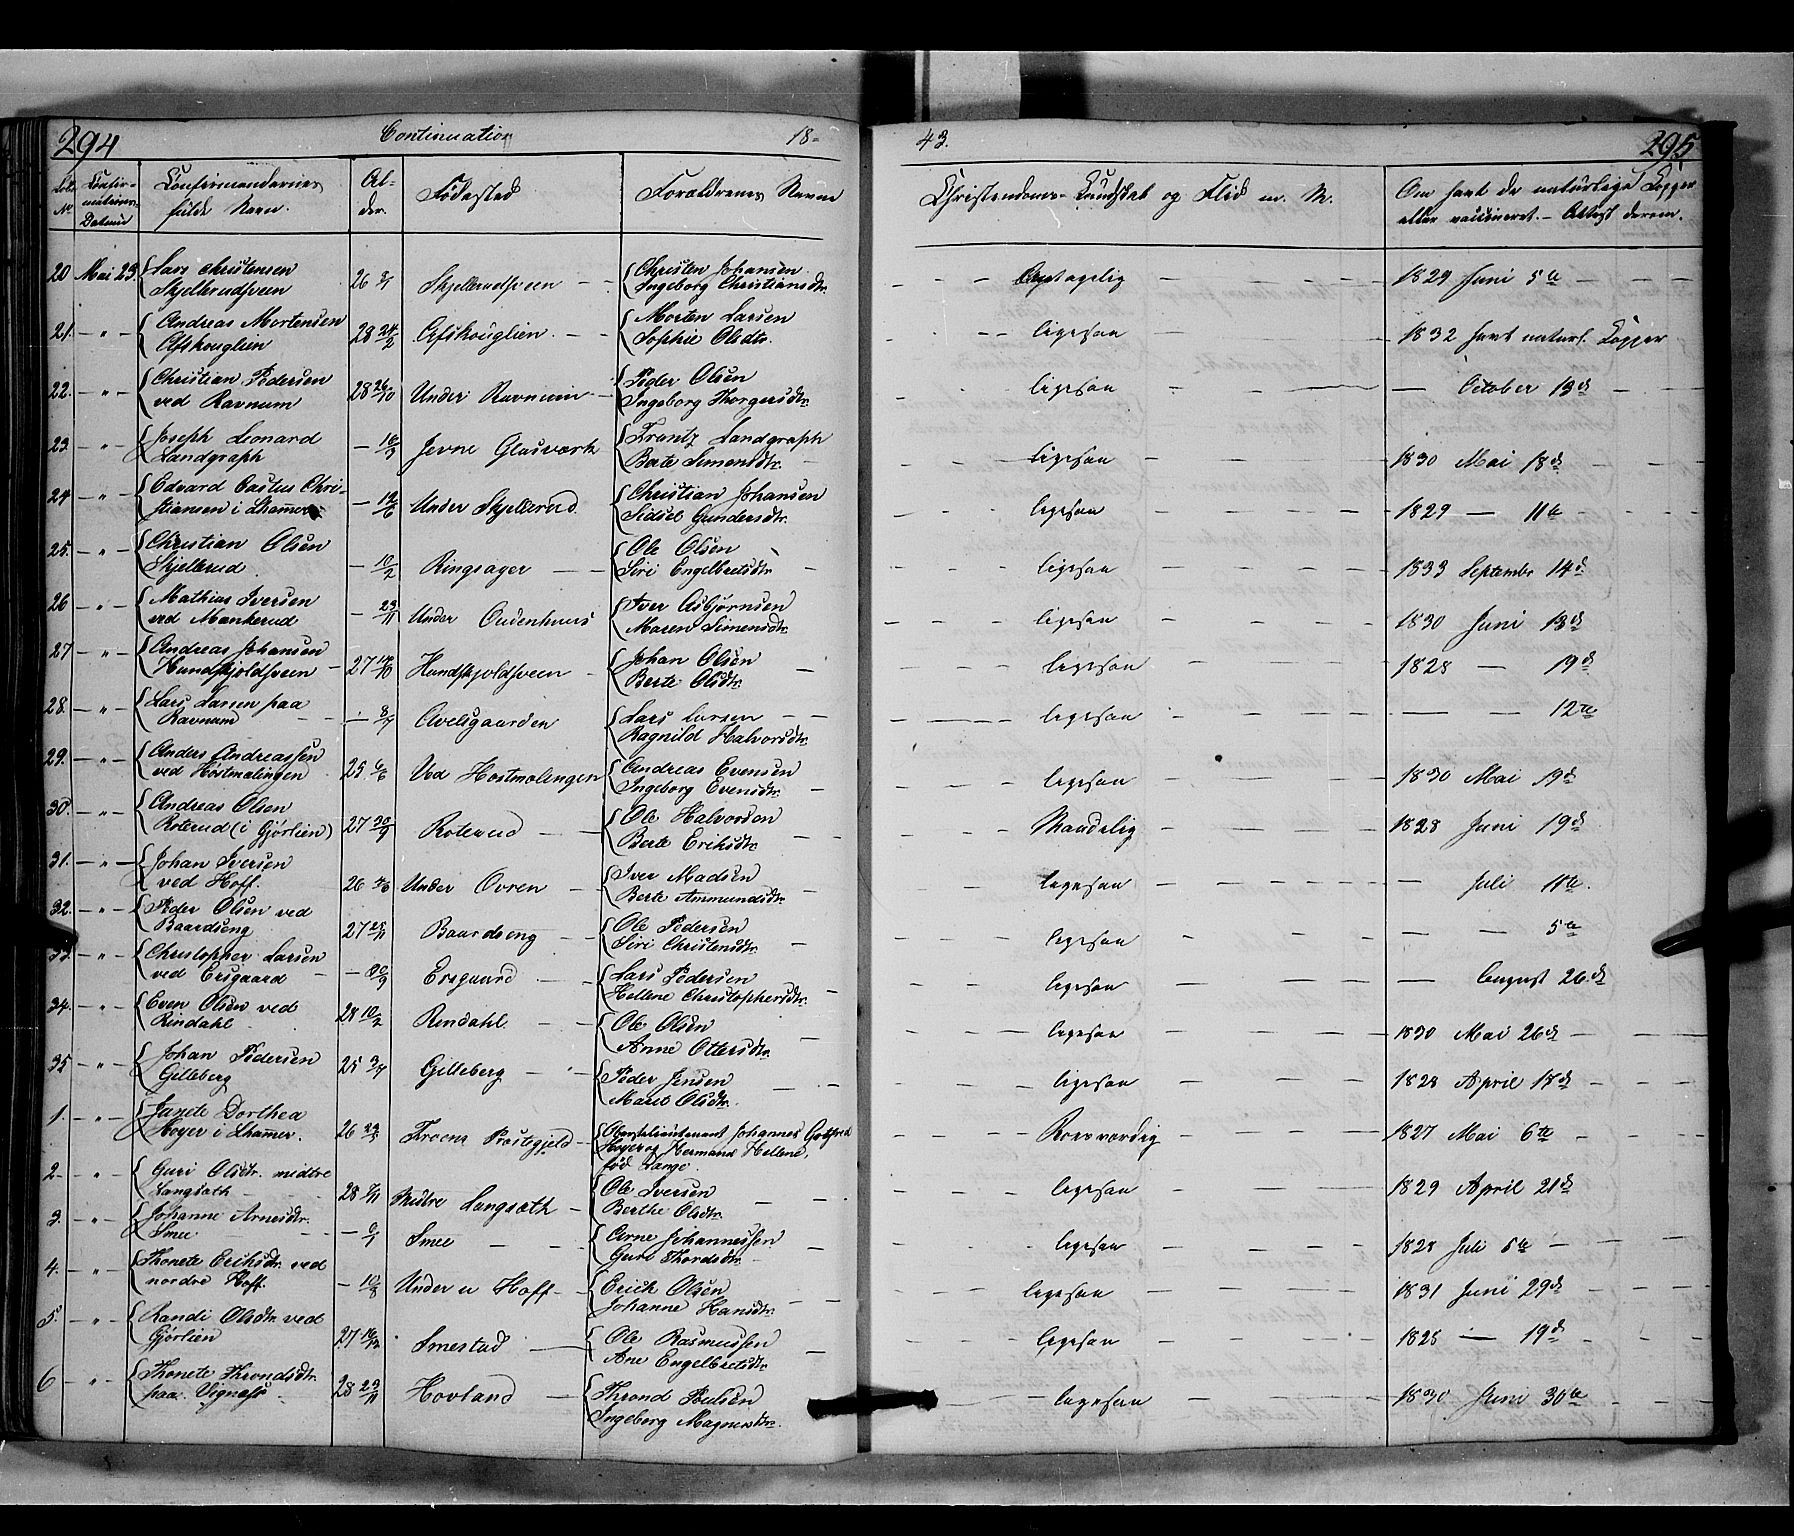 294 Continuation 18- 43. 295
Løbe No. Confirmationens Datum Confirmandernes fulde Navn. Alder. Fødested Forældrenes Navne Christendoms-Kundskab og Flid m. M. Om havt de naturlige Kopper eller vaccineret. - Attest derom.
20 Mai 23. Lars Christensen Skjellerudsveen 26 Skjellerudsveen Christen Johansen Ingeborg Christiansdtr. Antagelig 1829 Juni 5te
21. - " - Andreas Mortensen Afskouglien 28 24/2 Afskouglien. Morten Larsen Sophie Olsdtr. ligesaa 1832 havt naturl. Kopper
22. - " - Christian Pedersen ved Ravnum 28 26/10 Under Ravnum Peder Olsen Ingeborg Thorgersdtr. ligesaa - October 13d
23 - " - Joseph Leonard Landgraph - 18/9 Jevne Glasværk Frantz Landgraph Berte Simensdtr. ligesaa 1830 Mai 18d
24 - " - Edvard Castus Christiansen i Lhammer - 12/6 Under Skjellerud Christian Johansen Sidsel Gundersdtr. ligesaa 1829 - 11te
25. - " - Christian Olsen Skjellerud - 10/2 Ringsager Ole Olsen Siri Engelbretsdtr. ligesaa 1833 Septembr 14d
26 - " - Mathias Iversen ved Mankerud - 23/11 Under Oudenhuus Iver Asbjørnsen Maren Simensdtr. ligesaa 1830 Juni 13d
27 - " - Andreas Johansen Hundskjoldsveen 27 14/10 Hundskjoldsveen Johan Olsen Berte Olsdtr. ligesaa 1828 - 19d
28. - " - Lars Larsen paa Ravnum - 8/7 Avelsgaarden Lars Larsen Ragnild Halvorsdtr. ligesaa - - 12te
29. - " - Anders Andreassen ved Høstmælingen 25 6/6 Ved Hostmælingen Andreas Evensen Ingeborg Evensdtr. ligesaa 1830 Mai 19d
30. - " - Andreas Olsen Roterud (i Gjørlien) 27 30/9 Roterud Ole Halvorsen Berte Eriksdtr. Maadelig 1828 Juni 19d
31. - " - Johan Iversen ved Hoff. 26 Under Ovren Iver Madsen Berte Ammundsdtr. ligesaa Juli 11te.
32. - " - Peder Olsen ved Baardseng 27 28/11 Baardseng Ole Pedersen Siri Christensdtr. ligesaa - - 5te
33 - " - Christopher Larsen ved Ersgaard - 30/9 Ersgaard Lars Pedersen Hellene Christophersdtr. ligesaa - August 26d
34. - " - Even Olsen ved Rindahl 28 10/2 Rindahl. Ole Olsen Anne Ottersdtr. ligesaa 1830 Mai 26d
35 - " - Johan Pedersen Gilleberg 25 3/7 Gilleberg Peder Jensen Marit Olsdtr. ligesaa 1828 April 18d
1. - " - Janete Dorthea Høyer i Lhammer. 26 Froens Præstegjeld Oberstlieutenant Johannes Gotfred Høyer og Hermana Hellene, fød Lange. Roesværdig 1827 Mai 6te
2. - " - Guri Olsdtr. midtre Langsæth 28 7/11 Midtre Langsæth Ole Iversen Berthe Olsdtr. ligesaa 1829 April 21d
3. - " - Johanne Arnesdtr. Smee - 6/1 Smee Arne Johannessen Guri Thordsdtr. ligesaa 1828 Juli 5te
4. - " - Thonete Eriksdtr. ved nordre Hoff. - 10/8 Under n Hoff Erick Olsen Johanne Hansdtr. ligesaa 1831 Juni 29d
5. - " - Randi Olsdtr. ved Gjørlien 27 16/12 Smestad Ole Rasmussen Ane Engelbretsdtr. ligesaa 1828 - 19d
6 - " - Thonete Throndsdtr. paa Vignæss 28 29/11 Hovland Thrond Poulsen Ingeborg Magnusdtr. ligesaa 1830 Juni 30te